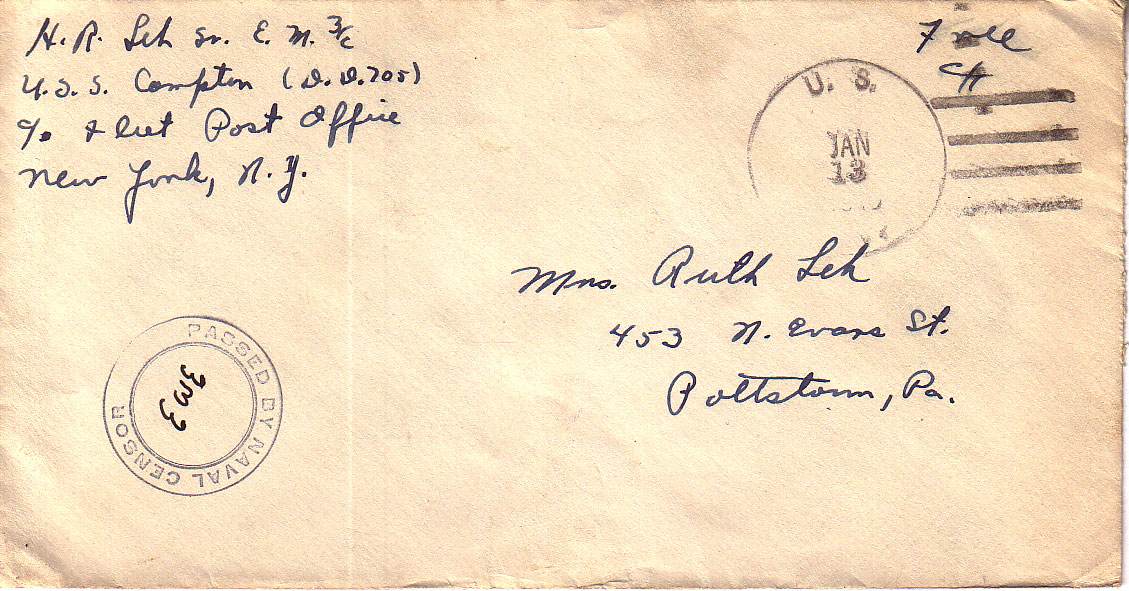 H. R. Leh Sr. E. M. 3/c
U. S. S. Compton (D. D. 705)
c/o Fleet Post Office
New York, N. Y.
Free
U. S.
JAN
13
Mrs. Ruth Leh
453 N. Evans St.
Pottstown, Pa.
PASSED BY NAVAL CENSOR